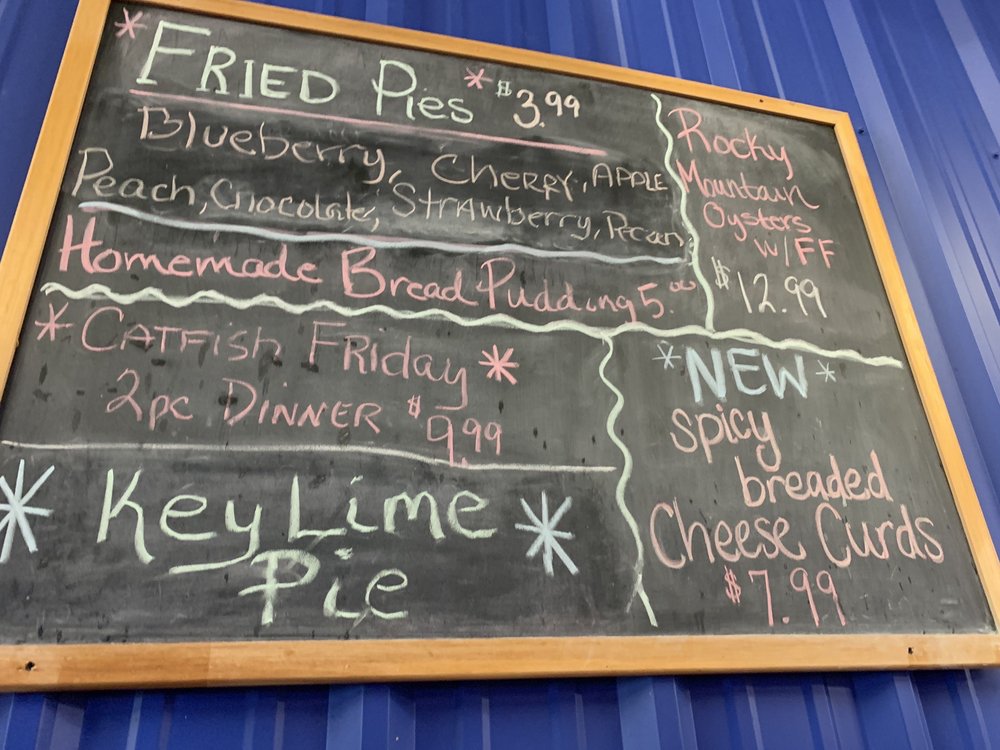 * FRIED Pies * $3.99
Blueberry, CHERRY, APPLE
Peach, Chocolate, STrAwberry, Pecan
Homemade Bread Pudding 5.00
Rocky
Mountain
Oysters
W/FF
$12.99
* CATFish FRiday *
2pc DINNER $9.99
* Key Lime *
Pie
*NEW*
spicy
breaded
Cheese Curds
$7.99